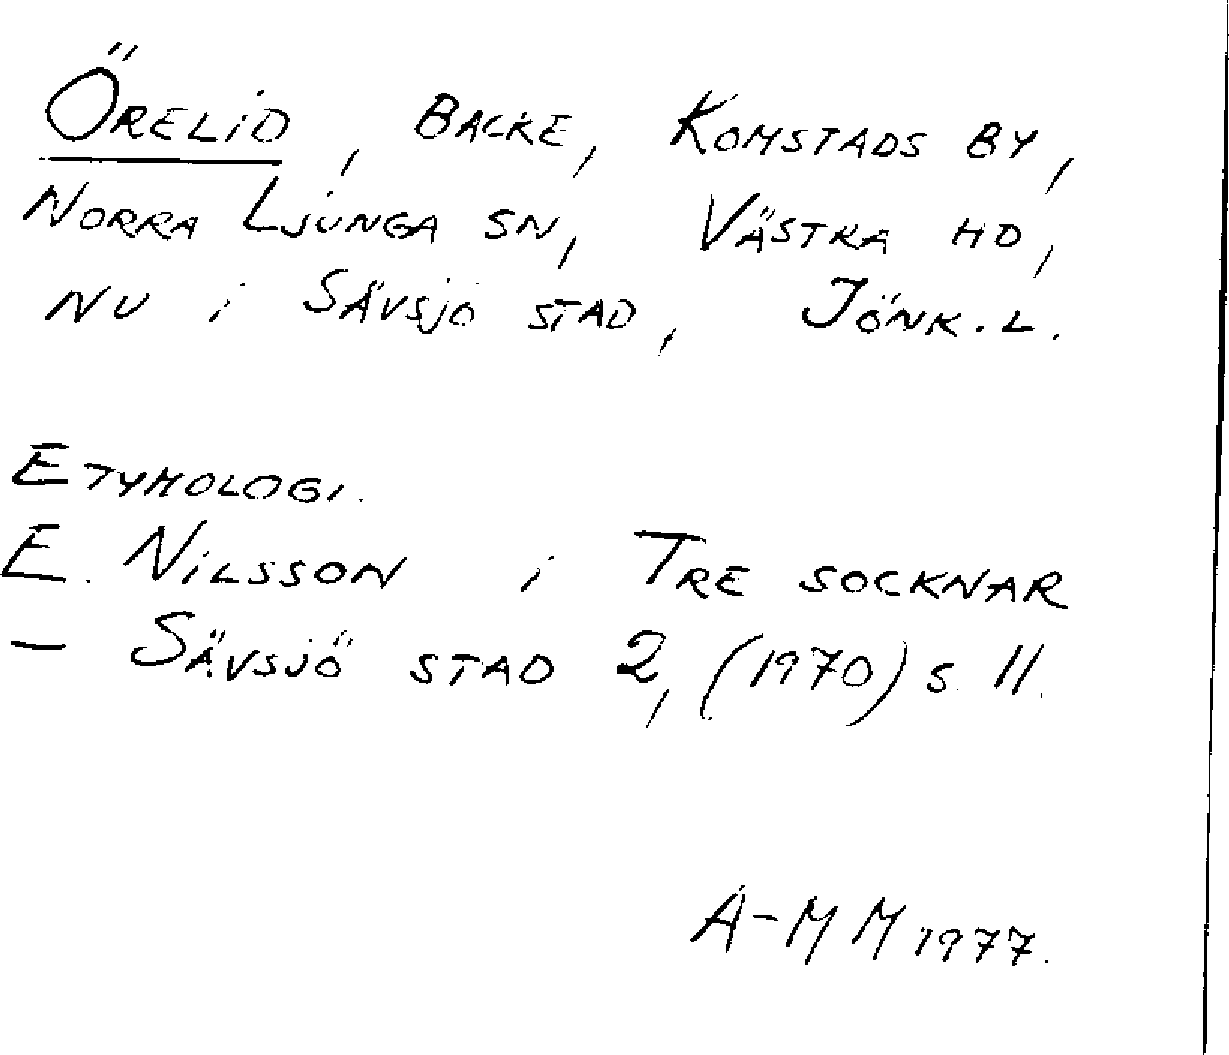 Örelid, backe, Komstads by,
Norra Ljunga sn, Västra hd,
nu i Sävsjö stad, Jönk.l.
Etymologi.
E. Nilsson i Tre socknar
- Sävsjö stad 2, (1970) s. 11.
A-MM 1977.